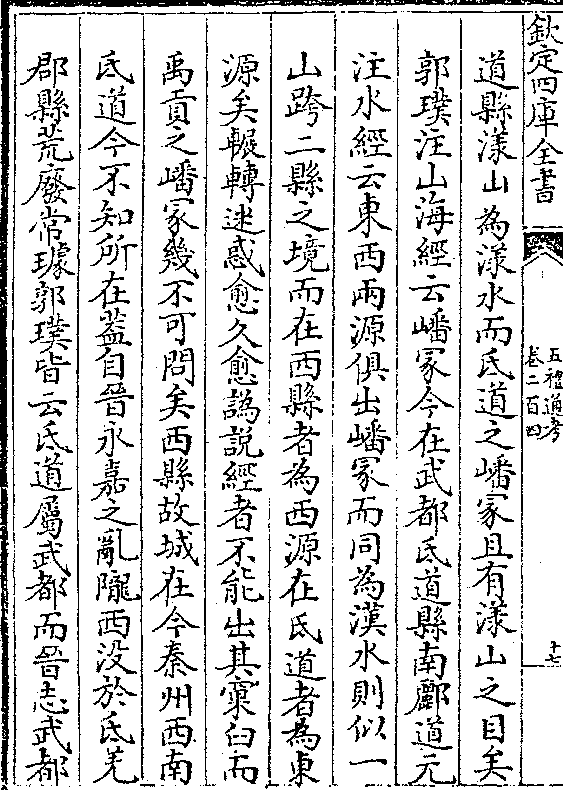 欽定四庫全書
五禮通考
卷二百四
十七
道縣漾山為漾水而氐道之嶓冢且有漾山之目矣
郭璞注山海經云嶓冢今在武都氐道縣南酈道元
注水經云東西兩源俱出嶓冢而同為漢水則似一
山跨二縣之境而在西縣者為西源在氐道者為東
源矣輾轉迷惑愈久愈譌説經者不能出其窠臼而
禹貢之嶓冢幾不可問矣西縣故城在今秦州西南
氐道今不知所在葢自晉永嘉之亂隴西没於氐羌
郡縣荒廢常璩郭璞皆云氐道屬武都而晉志武都